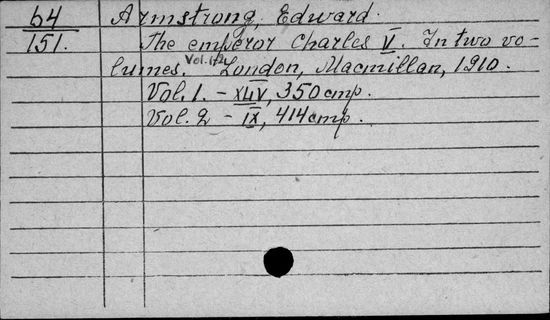 64 Armstrong, Edward.
151. The emperor Charles V. In two vo-
lumes. Vol. 1-2 London, Macmillan, 1910.
Vol. 1. - XLIV, 350 cmp.
Vol. 2 - IX, 414 cmp.